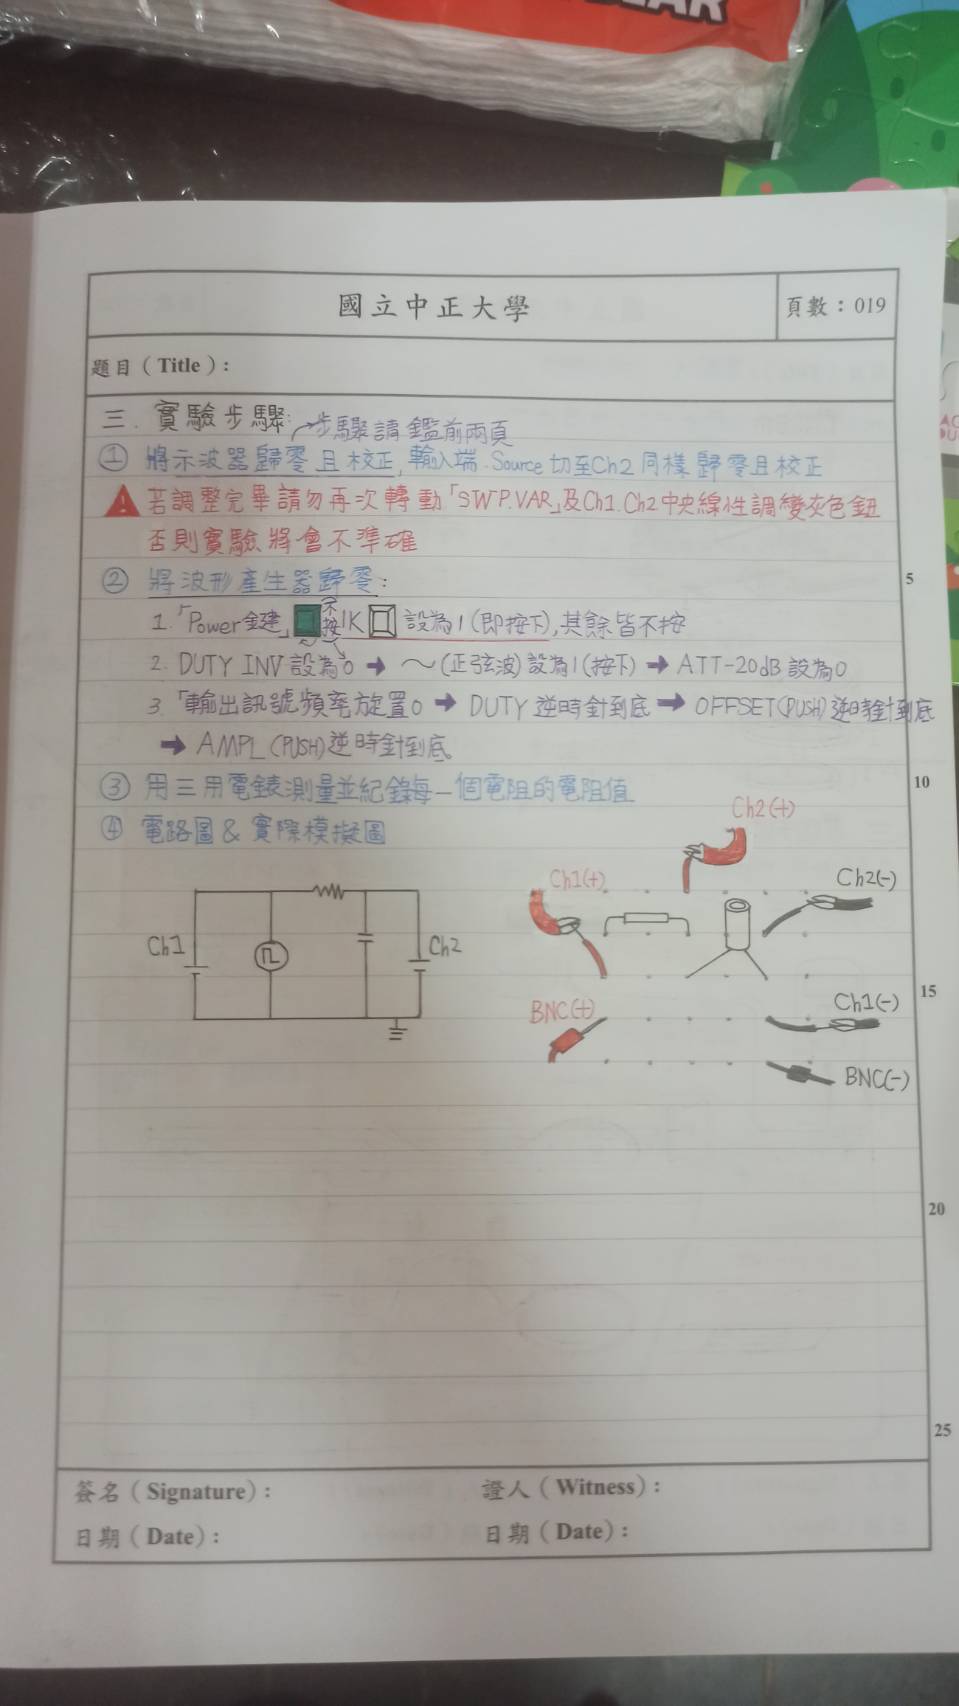 國立中正大學
頁數：019
題目（Title）：
三. 實驗步驟: →步驟請鑑前兩頁
① 將示波器歸零且校正, 輸入端. Source 切至Ch2 同樣歸零且校正
若調整完畢請勿再次轉動「SWP.VAR」及Ch1.Ch2中央線性調變灰色鈕
否則實驗將會不準確
② 將波形產生器歸零:
1.「Power鍵」不按 1K 設為1(即按下), 其餘皆不按
2. DUTY INV設為0 → ～(正弦波)設為1(按下) → ATT-20dB 設為0
3.「輸出訊號頻率旋置0 → DUTY 逆時針到底 → OFFSET(PUSH)逆時針到底
→ AMPL(PUSH)逆時針到底。
③ 用三用電錶測量並紀錄每一個電阻的電阻值
④ 電路圖 & 實際模擬圖
Ch1
Ch2
Ch2(+)
Ch1(+)
Ch2(-)
BNC(+)
Ch1(-)
BNC(-)
5
10
15
20
25
簽名（Signature）：
證人（Witness）：
日期（Date）：
日期（Date）：